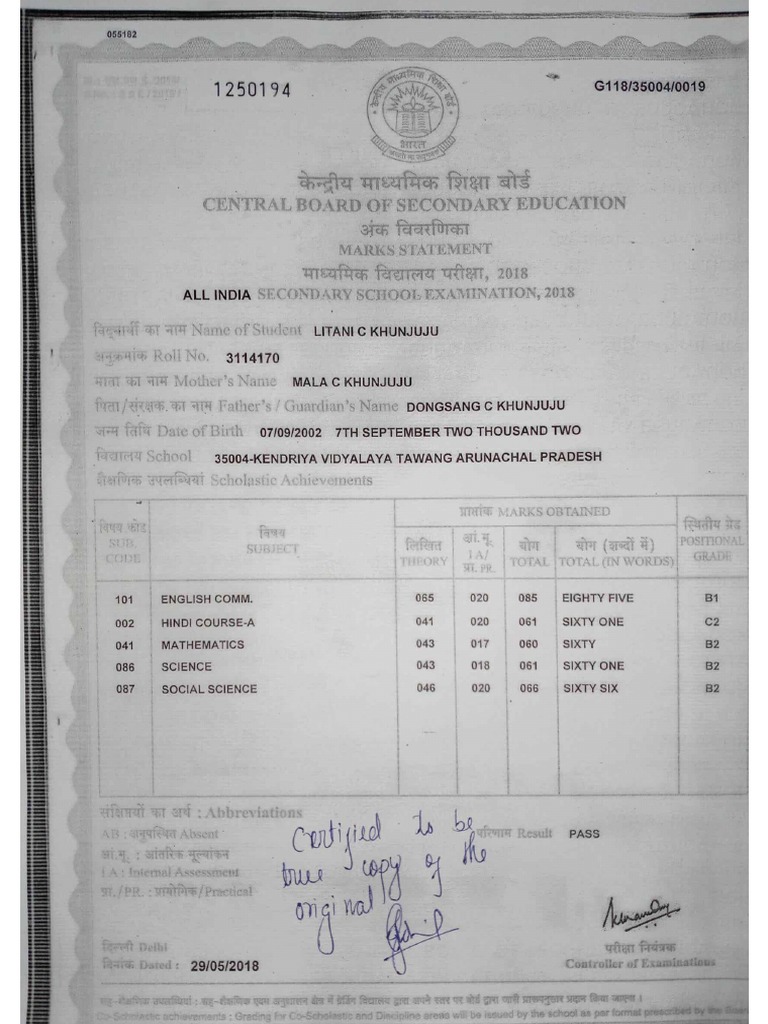 055182
1250194
G118/35004/0019
केन्द्रीय माध्यमिक शिक्षा बोर्ड
भारत
केन्द्रीय माध्यमिक शिक्षा बोर्ड
CENTRAL BOARD OF SECONDARY EDUCATION
अंक विवरणिका
MARKS STATEMENT
माध्यमिक विद्यालय परीक्षा, 2018
ALL INDIA SECONDARY SCHOOL EXAMINATION, 2018
विद्यार्थी का नाम Name of Student LITANI C KHUNJUJU
अनुक्रमांक Roll No. 3114170
माता का नाम Mother's Name MALA C KHUNJUJU
पिता/संरक्षक का नाम Father's / Guardian's Name DONGSANG C KHUNJUJU
जन्म तिथि Date of Birth 07/09/2002 7TH SEPTEMBER TWO THOUSAND TWO
विद्यालय School 35004-KENDRIYA VIDYALAYA TAWANG ARUNACHAL PRADESH
शैक्षणिक उपलब्धियां Scholastic Achievements
विषय कोड SUB. CODE विषय SUBJECT प्राप्तांक MARKS OBTAINED स्थितीय ग्रेड POSITIONAL GRADE
लिखित THEORY आं.मू. I A/ प्रा. PR. योग TOTAL योग (शब्दों में) TOTAL (IN WORDS)
101 ENGLISH COMM. 065 020 085 EIGHTY FIVE B1
002 HINDI COURSE-A 041 020 061 SIXTY ONE C2
041 MATHEMATICS 043 017 060 SIXTY B2
086 SCIENCE 043 018 061 SIXTY ONE B2
087 SOCIAL SCIENCE 046 020 066 SIXTY SIX B2
संक्षिप्तियों का अर्थ : Abbreviations
AB : अनुपस्थित Absent
परिणाम Result PASS
आं.मू. : आंतरिक मूल्यांकन
I A : Internal Assessment
प्रा./PR. : प्रायोगिक/Practical
Certified to be
true copy of the
original
दिल्ली Delhi
परीक्षा नियंत्रक
दिनांक Dated : 29/05/2018
Controller of Examinations
सह-शैक्षणिक उपलब्धियां : सह-शैक्षणिक एवम अनुशासन क्षेत्र में ग्रेडिंग विद्यालय द्वारा अपने स्तर पर बोर्ड द्वारा जारी प्रारूपनुसार प्रदान किया जाएगा ।
Co-Scholastic achievements : Grading for Co-Scholastic and Discipline areas will be issued by the school as per format prescribed by the Board